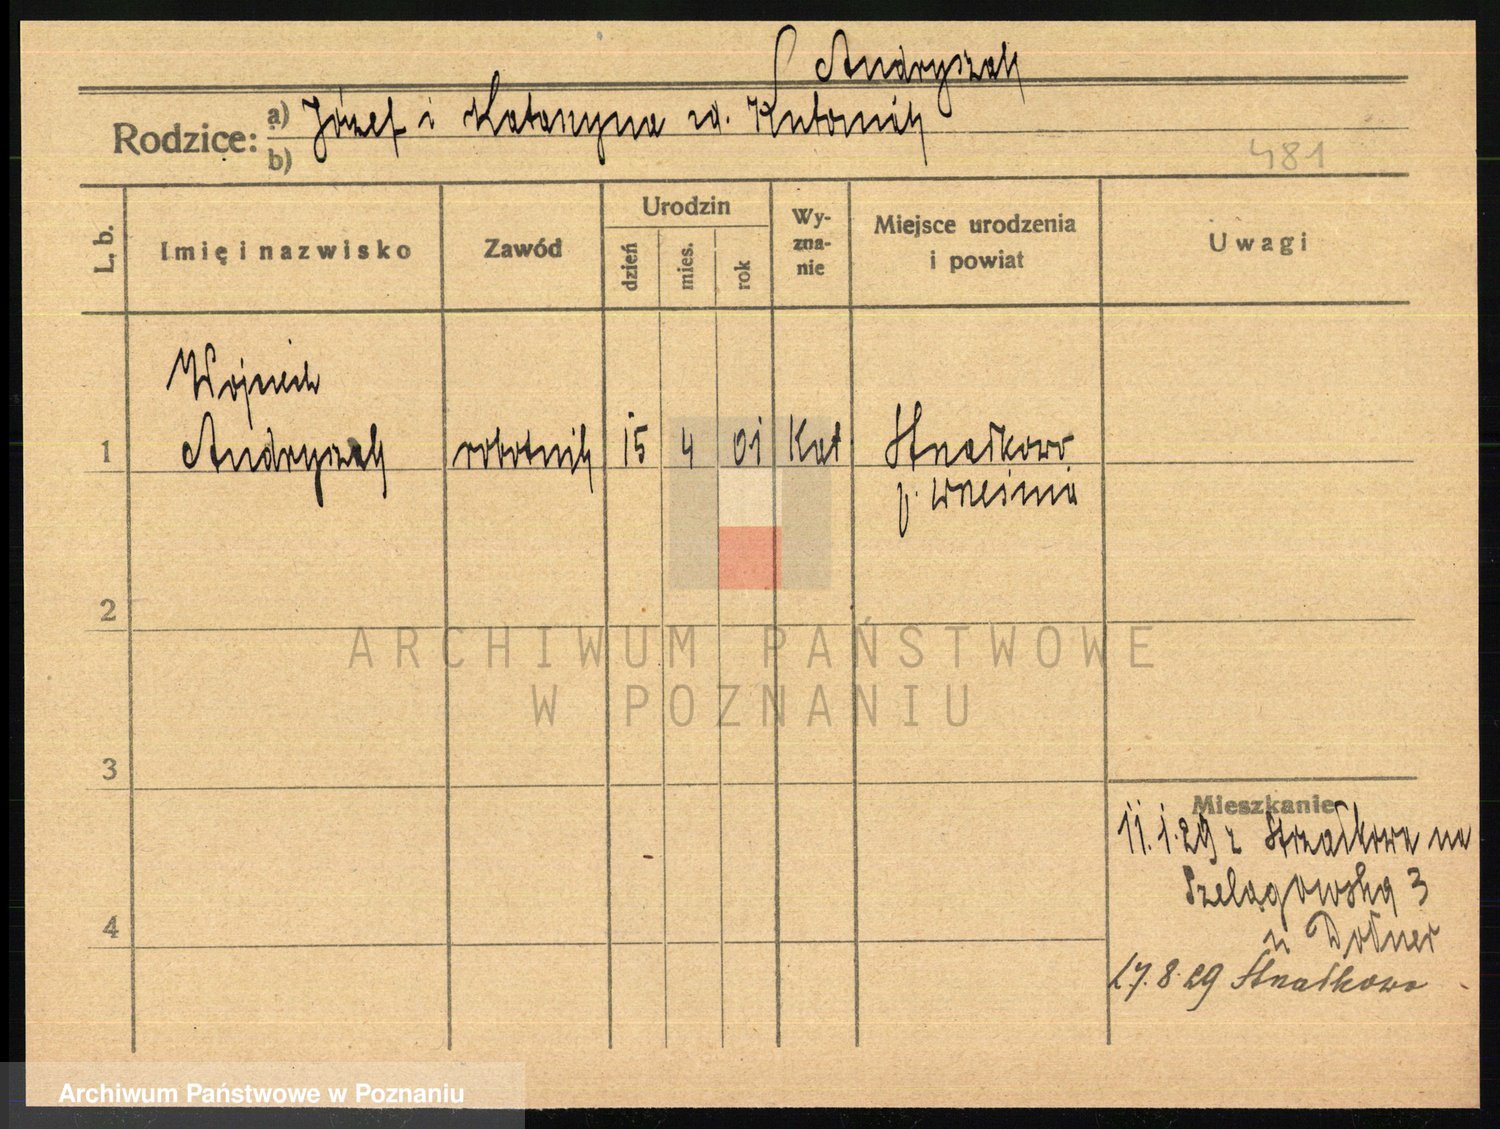 Andryszak
Rodzice: a) Józef i Katarzyna zd. Kutomik
b)
481
L. b.
Imię i nazwisko
Zawód
Urodzin
dzień
mies.
rok
Wy-
zna-
nie
Miejsce urodzenia
i powiat
Uwagi
Wojciech
1 Andryszak robotnik 15 4 01 Kat Strzałkowo
p. Września
2
ARCHIWUM PAŃSTWOWE
W POZNANIU
3
Mieszkanie
11.1.29 z Strzałkowa na
Szelągowską 3
u
4
27.8.29 Strzałkowo
Archiwum Państwowe w Poznaniu